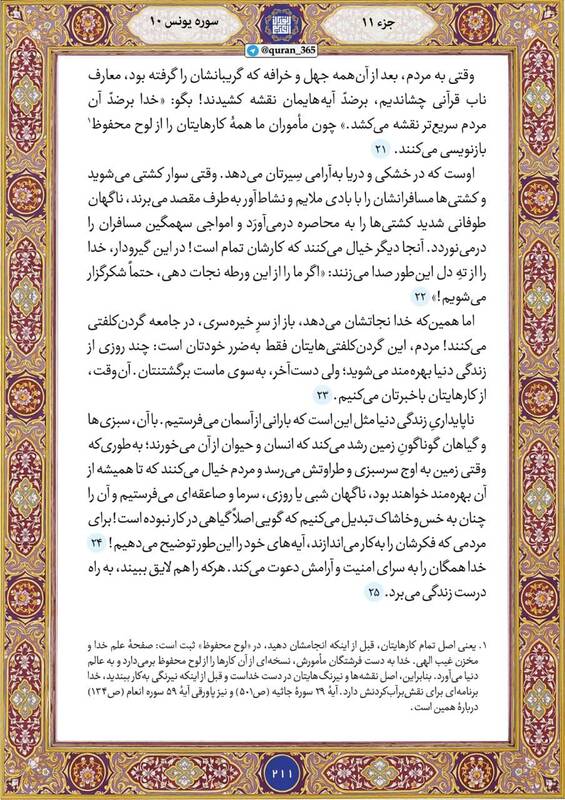 جزء ۱۱
سوره یونس ۱۰
@quran_365
وقتی به مردم، بعد از آن‌همه جهل و خرافه که گریبانشان را گرفته بود، معارف
ناب قرآنی چشاندیم، برضدّ آیه‌هایمان نقشه کشیدند! بگو: «خدا برضدّ آن
مردم سریع‌تر نقشه می‌کشد.» چون مأموران ما همهٔ کارهایتان را از لوح محفوظ۱
بازنویسی می‌کنند. ۲۱
اوست که در خشکی و دریا به‌آرامی سِیرتان می‌دهد. وقتی سوار کشتی می‌شوید
و کشتی‌ها مسافرانشان را با بادی ملایم و نشاط‌آور به‌طرف مقصد می‌برند، ناگهان
طوفانی شدید کشتی‌ها را به محاصره درمی‌آورَد و امواجی سهمگین مسافران را
درمی‌نوردد. آنجا دیگر خیال می‌کنند که کارشان تمام است! در این گیرودار، خدا
را از تهِ دل این‌طور صدا می‌زنند: «اگر ما را از این ورطه نجات دهی، حتماً شکرگزار
می‌شویم!» ۲۲
اما همین‌که خدا نجاتشان می‌دهد، باز از سرِ خیره‌سری، در جامعه گردن‌کلفتی
می‌کنند! مردم، این گردن‌کلفتی‌هایتان فقط به‌ضرر خودتان است: چند روزی از
زندگی دنیا بهره‌مند می‌شوید؛ ولی دست‌آخر، به‌سوی ماست برگشتنتان. آن‌وقت،
از کارهایتان باخبرتان می‌کنیم. ۲۳
ناپایداریِ زندگی دنیا مثل این است که بارانی از آسمان می‌فرستیم. با آن، سبزی‌ها
و گیاهان گوناگونِ زمین رشد می‌کند که انسان و حیوان از آن می‌خورند؛ به‌طوری‌که
وقتی زمین به اوج سرسبزی و طراوتش می‌رسد و مردم خیال می‌کنند که تا همیشه از
آن بهره‌مند خواهند بود، ناگهان شبی یا روزی، سرما و صاعقه‌ای می‌فرستیم و آن را
چنان به خس‌وخاشاک تبدیل می‌کنیم که گویی اصلاً گیاهی در کار نبوده است! برای
مردمی که فکرشان را به‌کار می‌اندازند، آیه‌های خود را این‌طور توضیح می‌دهیم! ۲۴
خدا همگان را به سرای امنیت و آرامش دعوت می‌کند. هرکه را هم لایق ببیند، به راه
درست زندگی می‌برد. ۲۵
۱. یعنی اصل تمام کارهایتان، قبل از اینکه انجامشان دهید، در «لوح محفوظ» ثبت است: صفحهٔ علم خدا و
مخزن غیب الهی. خدا به دست فرشتگان مأمورش، نسخه‌ای از آن کارها را از لوح محفوظ برمی‌دارد و به عالم
دنیا می‌آورد. بنابراین، اصل نقشه‌ها و نیرنگ‌هایتان در دست خداست و قبل از اینکه نیرنگی به‌کار ببندید، خدا
برنامه‌ای برای نقش‌برآب‌کردنش دارد. آیهٔ ۲۹ سورهٔ جاثیه (ص۵۰۱) و نیز پاورقی آیهٔ ۵۹ سوره انعام (ص۱۳۴)
دربارهٔ همین است.
۲۱۱